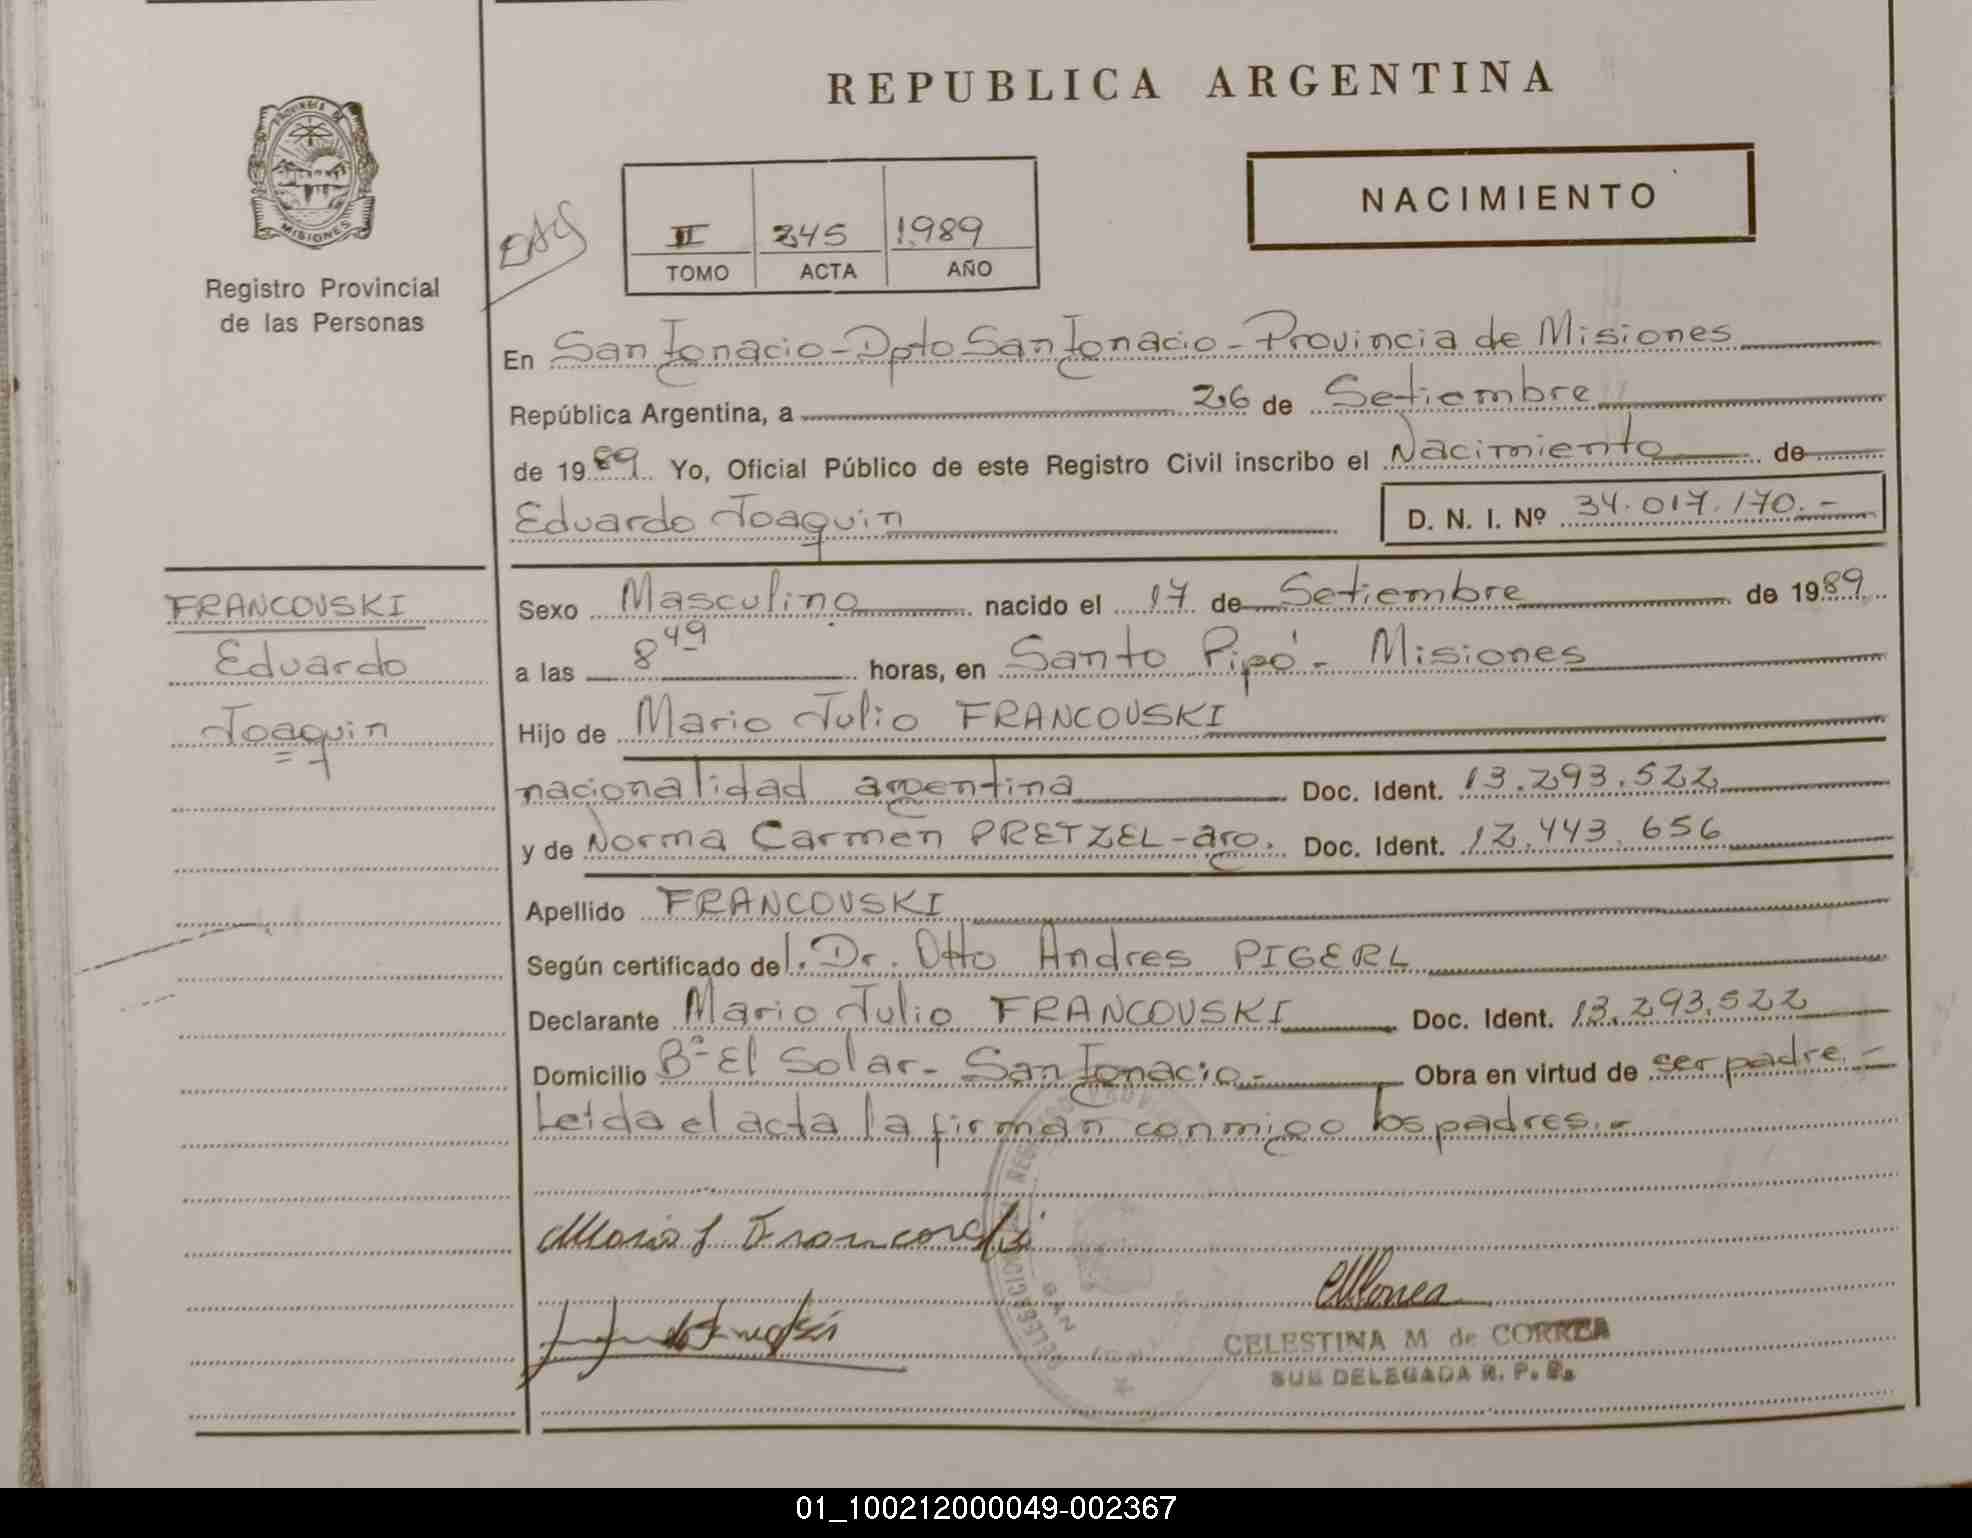 REPUBLICA ARGENTINA
PROVINCIA DE
MISIONES
Registro Provincial
de las Personas
II 245 1989
TOMO ACTA AÑO
NACIMIENTO
En San Ignacio - Dpto San Ignacio - Provincia de Misiones
República Argentina, a 26 de Setiembre
de 1989. Yo, Oficial Público de este Registro Civil inscribo el Nacimiento de
Eduardo Joaquin D. N. I. Nº 34.017.170.-
FRANCOUSKI
Eduardo
Joaquin
Sexo Masculino nacido el 17 de Setiembre de 1989
a las 8 49 horas, en Santo Pipó - Misiones
Hijo de Mario Julio FRANCOUSKI
nacionalidad argentina Doc. Ident. 13.293.522
y de Norma Carmen PRETZEL - arg. Doc. Ident. 12.443.656
Apellido FRANCOUSKI
Según certificado del. Dr. Otto Andres PIGERL
Declarante Mario Julio FRANCOUSKI Doc. Ident. 13.293.522
Domicilio Bº El Solar - San Ignacio - Obra en virtud de ser padre.-
Leída el acta la firman conmigo los padres.-
Mario J Francouski
CELESTINA M de CORREA
SUB DELEGADA R. P. P.
01_100212000049-002367